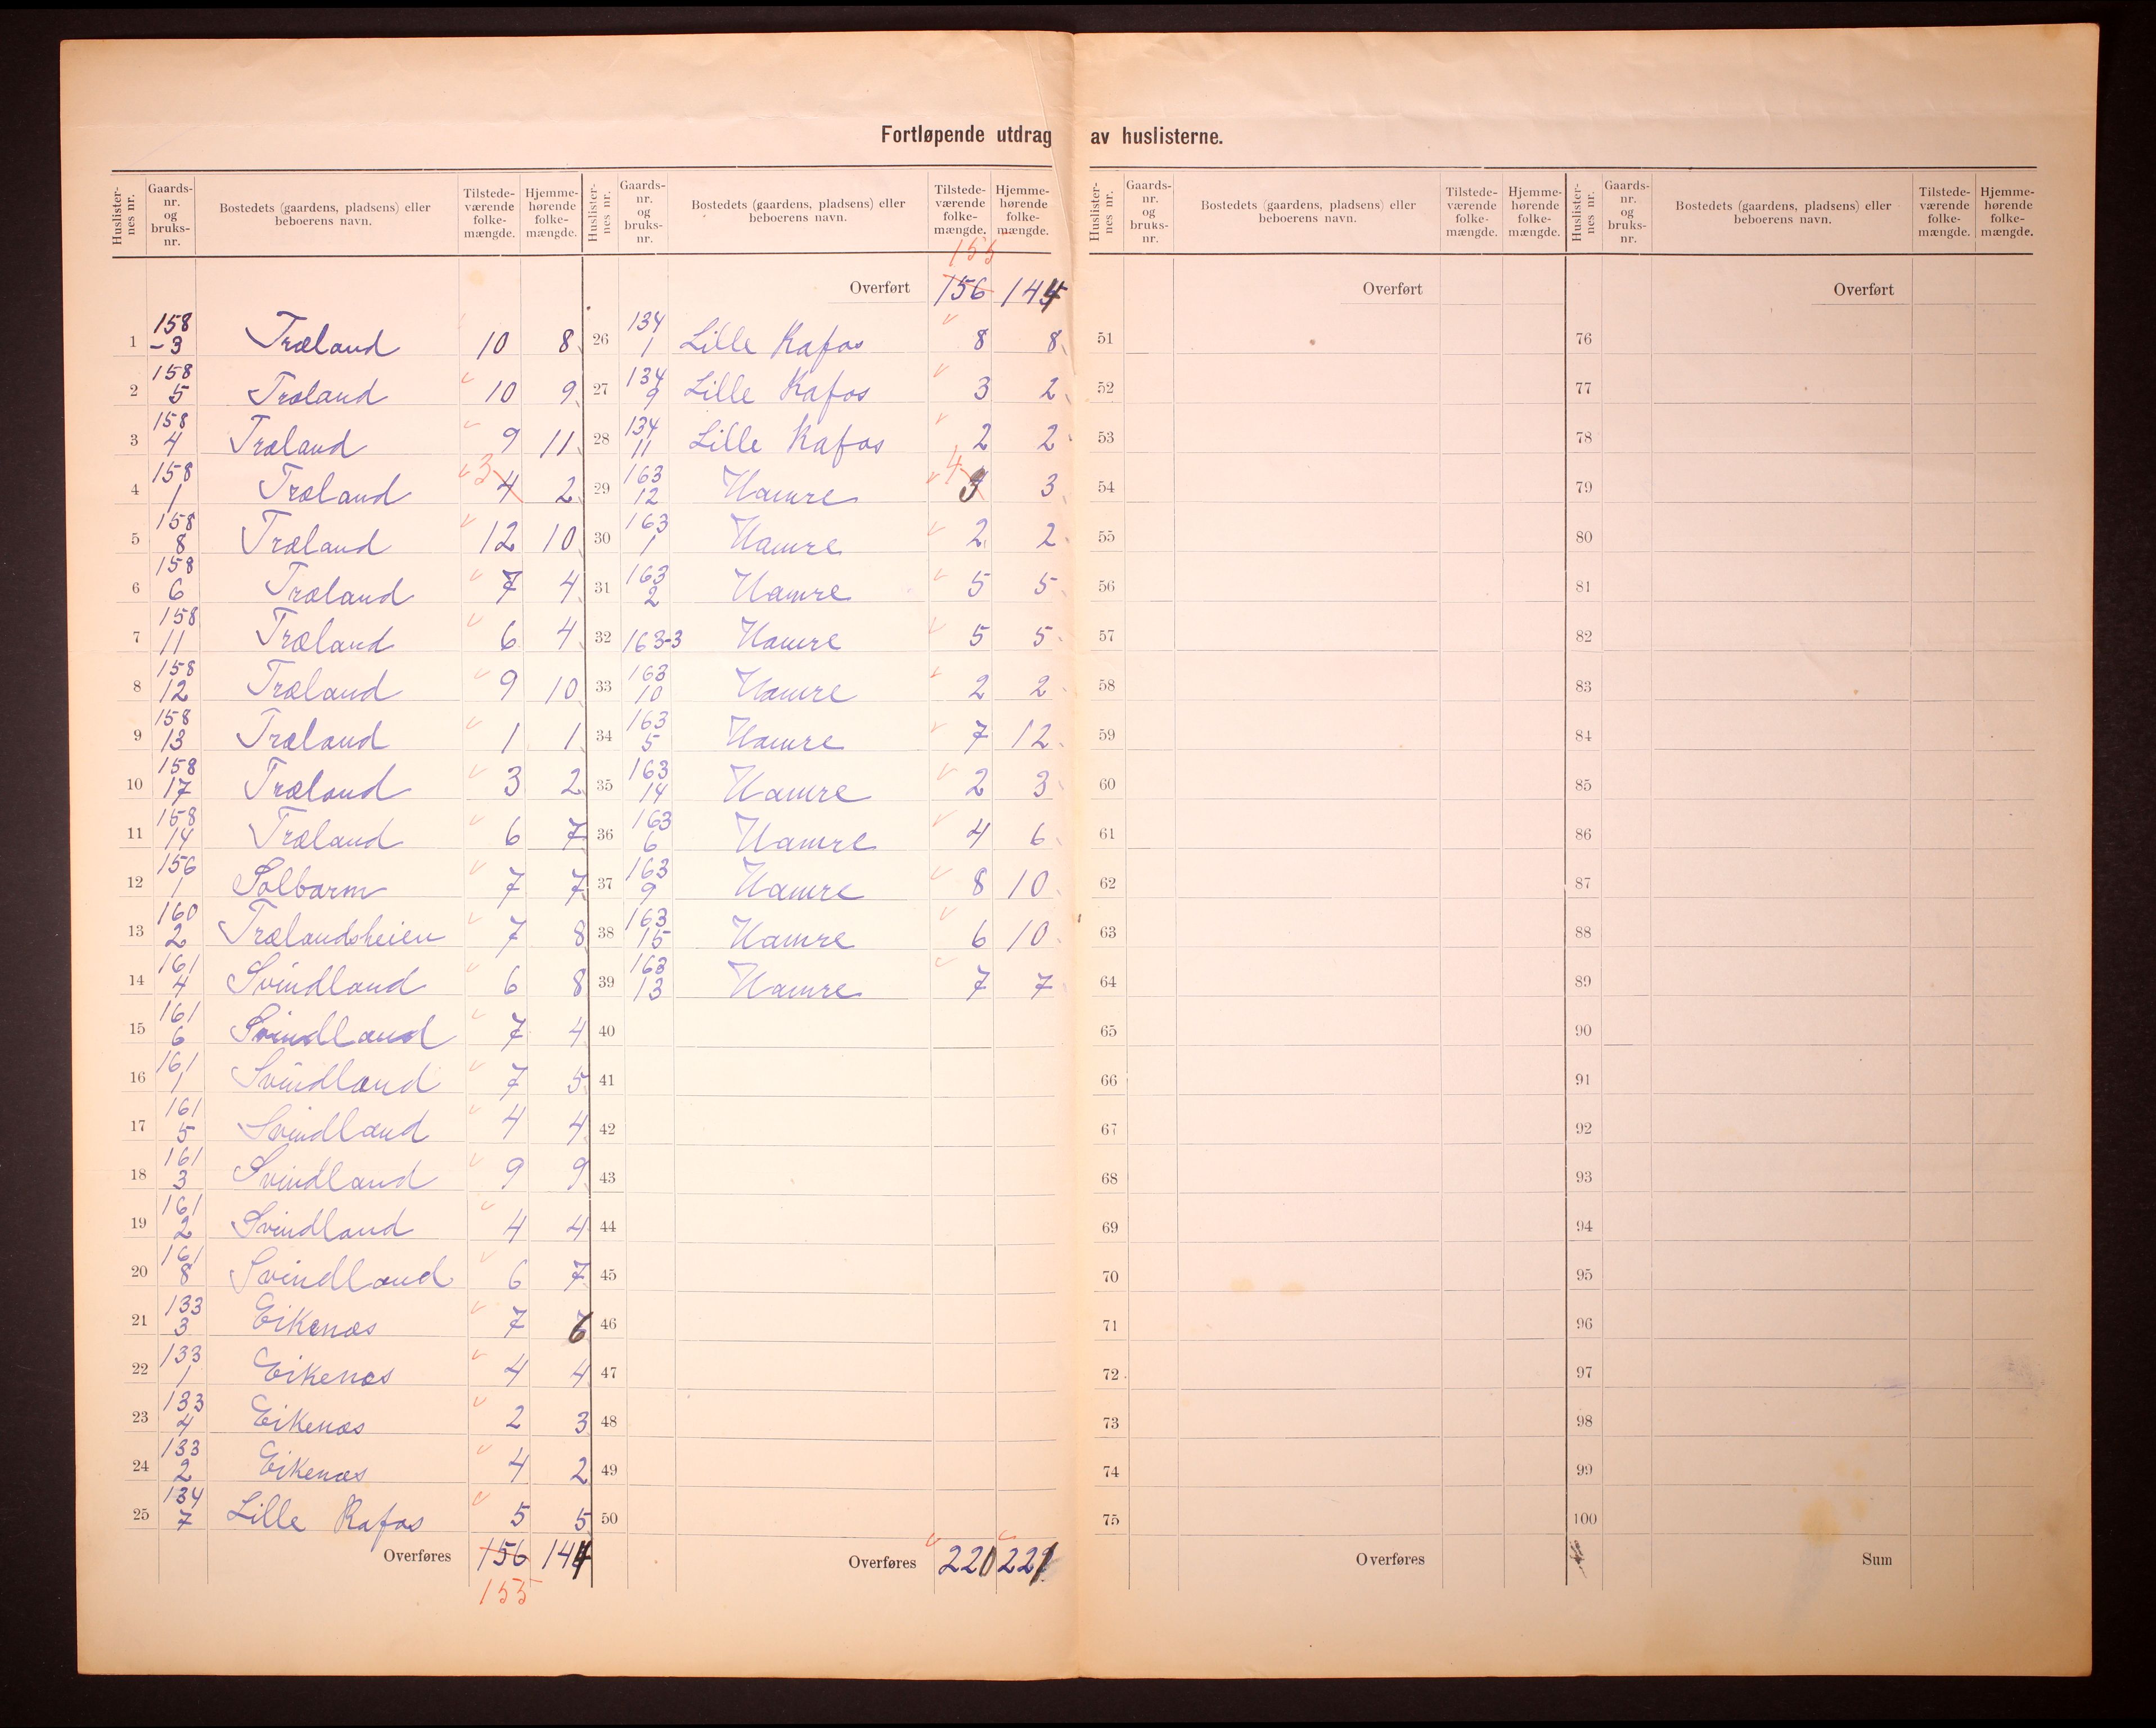 Fortløpende utdrag av huslisterne.
Huslisternes nr. Gaards-nr. og bruks-nr. Bostedets (gaardens, pladsens) eller beboerens navn. Tilstedeværende folkemængde. Hjemmehørende folkemængde.
1 158-3 Træland 10 8
2 158 5 Træland 10 9
3 158 4 Træland 9 11
4 158 1 Træland 3 4 2
5 158 8 Træland 12 10
6 158 6 Træland 7 4
7 158 11 Træland 6 4
8 158 12 Træland 9 10
9 158 13 Træland 1 1
10 158 17 Træland 3 2
11 158 14 Træland 6 7
12 156 1 Solbarm 7 7
13 160 2 Trælandsheien 7 8
14 161 4 Svindland 6 8
15 161 6 Svindland 7 4
16 161 1 Svindland 7 5
17 161 5 Svindland 4 4
18 161 3 Svindland 9 9
19 161 2 Svindland 4 4
20 161 8 Svindland 6 7
21 133 3 Eikenæs 7 6
22 133 1 Eikenæs 4 4
23 133 4 Eikenæs 2 3
24 133 2 Eikenæs 4 2
25 134 7 Lille Rafos 5 5
Overføres 156 144
155
Huslisternes nr. Gaards-nr. og bruks-nr. Bostedets (gaardens, pladsens) eller beboerens navn. Tilstedeværende folkemængde. Hjemmehørende folkemængde.
155
Overført 156 144
26 134 1 Lille Rafos 8 8
27 134 9 Lille Rafos 3 2
28 134 11 Lille Rafos 2 2
29 163 12 Hamre 4 3 3
30 163 1 Hamre 2 2
31 163 2 Hamre 5 5
32 163-3 Hamre 5 5
33 163 10 Hamre 2 2
34 163 5 Hamre 7 12
35 163 14 Hamre 2 3
36 163 6 Hamre 4 6
37 163 9 Hamre 8 10
38 163 15 Hamre 6 10
39 163 13 Hamre 7 7
40
41
42
43
44
45
46
47
48
49
50
Overføres 220 221
Huslisternes nr. Gaards-nr. og bruks-nr. Bostedets (gaardens, pladsens) eller beboerens navn. Tilstedeværende folkemængde. Hjemmehørende folkemængde.
Overført
51
52
53
54
55
56
57
58
59
60
61
62
63
64
65
66
67
68
69
70
71
72
73
74
75
Overføres
Huslisternes nr. Gaards-nr. og bruks-nr. Bostedets (gaardens, pladsens) eller beboerens navn. Tilstedeværende folkemængde. Hjemmehørende folkemængde.
Overført
76
77
78
79
80
81
82
83
84
85
86
87
88
89
90
91
92
93
94
95
96
97
98
99
100
Sum